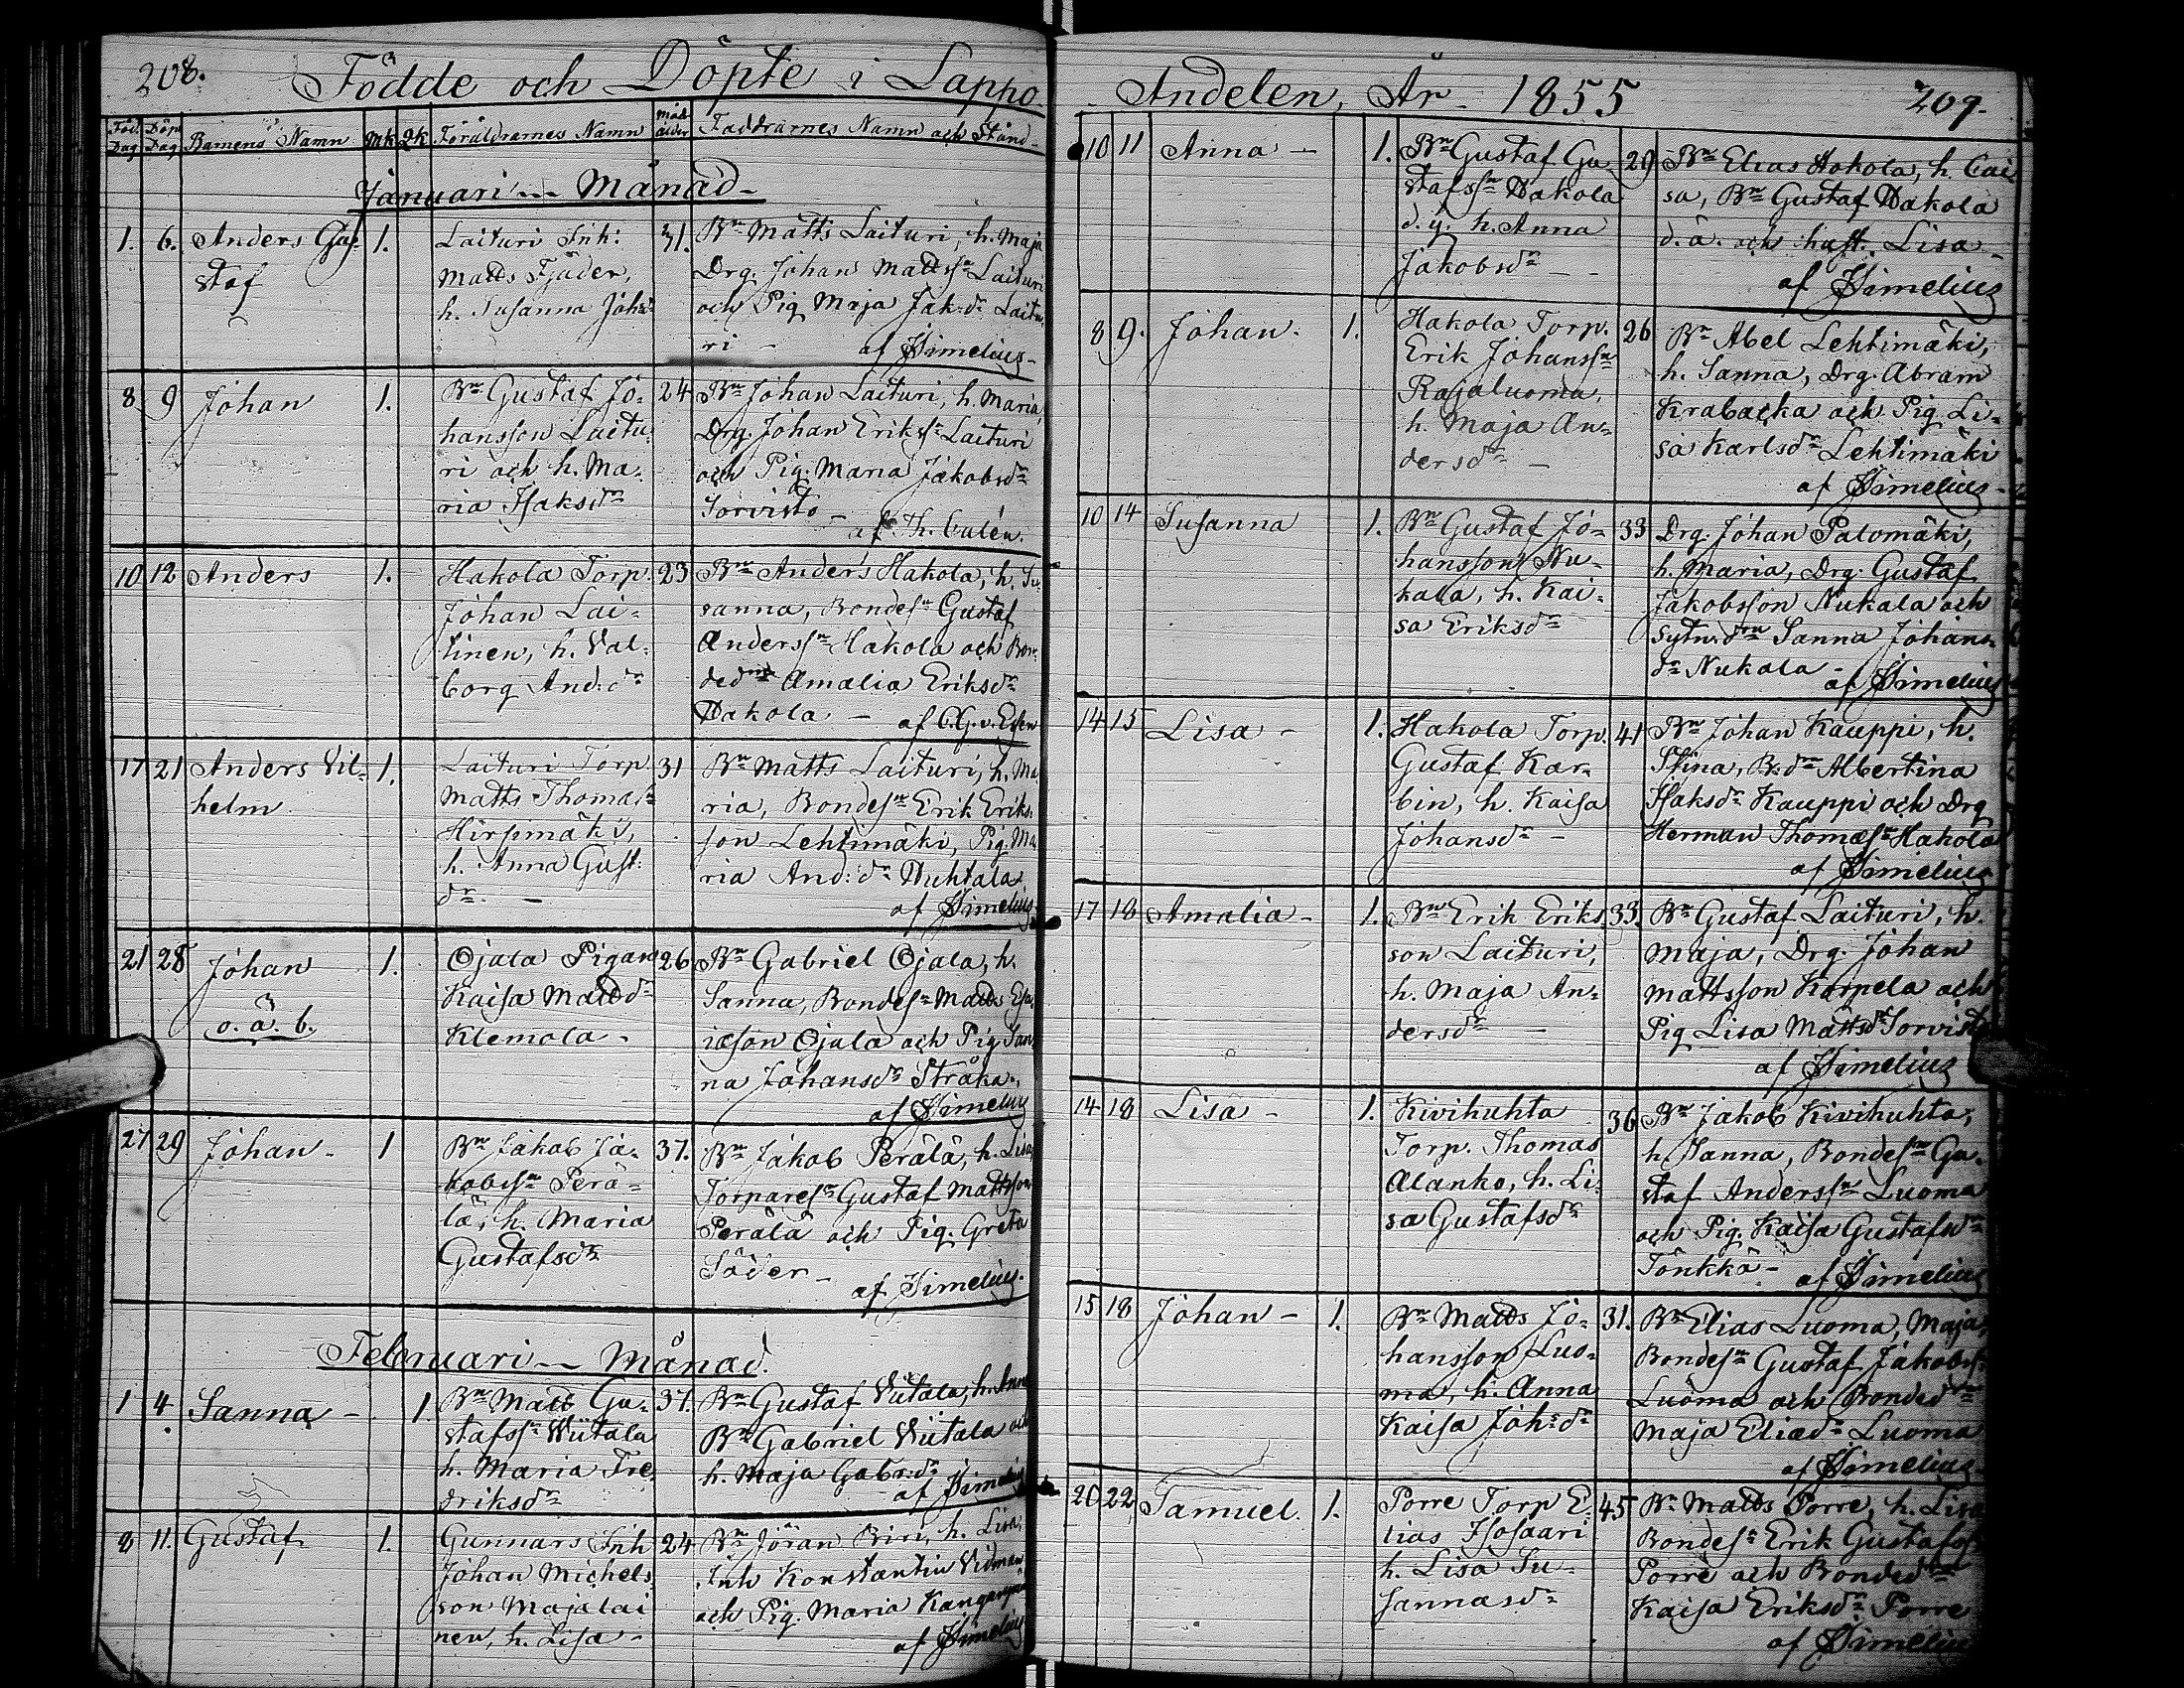 208.
Födde och Döpte i Lappo
Föd. Dag
Döp. Dag
Barnens Namn
Mk
Qk
Föräldrarnes Namn
Mod. ålder
Faddrarnes Namn och Stånd
Januari Månad
1. 6. Anders Gus-
staf
1.
Laituri Inh:
Matts Fjäder,
h. Susanna Joh:
31.
Bn Matts Laituri, h. Maja
Drg. Johan Mattssn Laituri
och Pig Maja Jak:dr Laitu-
ri - af Simelius
8 9 Johan 1.
Bn Gustaf Jo-
hansson Laitu-
ri och h. Ma-
ria Isaksdr
24
Bn Johan Laituri, h. Maria,
Drg. Johan Erikssn Laituri
och Pig. Maria Jakobsdr
Sorvisto -
af Th. Calén.
10 12 Anders 1.
Hakola Torp.
Johan Lai-
tinen, h. Val-
borg And:dr
23
Bn Anders Hakola, h. Su-
sanna, Bondesn Gustaf
Anderssn Hakola och Bon-
dedn Amalia Eriksdr
Hakola - af C.G.v.Essen
17 21 Anders Vil-
helm
1.
Laituri Torp
Matts Thomasn
Hirsimäki,
h. Anna Gust:
dr. -
31
Bn Matts Laituri, h. Ma-
ria, Bondesn Erik Eriks-
son Lehtimäki, Pig. Ma-
ria And:dr Huhtala
af Simelius
21 28 Johan
o. ä. b.
1.
Ojala Pigan
Kaisa Mattsdr
Klemola -
26
Bn Gabriel Ojala, h.
Sanna, Bondesn Matts Esa-
iæson Ojala och Pig. San-
na Johansdr Stråka,
af Simelius
27 29 Johan - 1
Bn Jakob Ja-
kobssn Perä-
lä, h. Maria
Gustafsdr
37.
Bn Jakob Perälä, h. Lisa
Torparesn Gustaf Mattsson
Perälä och Pig. Greta
Söder -
af Simelius.
Februari Månad.
1 4 Sanna - 1.
Bn Matts Gu-
stafssn Wiitala
h. Maria Fre-
driksdr
37.
Bn Gustaf Viitala, h. Anna
Bn Gabriel Viitala och
h. Maja Gabr:dr
af Simelius
8 11. Gustaf 1.
Gunnars Inh
Johan Michels-
son Majalai
nen, h. Lisa -
24
Bn Jöran Biri, h. Lisa,
Inh Konstantin Vidman
och Pig. Maria
af Simelius
Andelen, År 1855
209.
10 11 Anna - 1.
Bn Gustaf Gu-
stafssn Hakola
d. y. h. Anna
Jakobsdr -
29
Bn Elias Hakola, h. Cai-
sa, Bn Gustaf Hakola
d. ä. och hust. Lisa
af Simelius
8 9. Johan. 1.
Hakola Torp.
Erik Johanssn
Rajaluoma,
h. Maja An-
dersdr -
26
Bn Abel Lehtimäki,
h. Sanna, Drg. Abram
Krabacka och Pig. Li-
sa Karlsdr Lehtimäki
af Simelius
10 14 Susanna 1.
Bn Gustaf Jo-
hansson Nu-
kala, h. Kai-
sa Eriksdr
33
Drg. Johan Palomäki,
h. Maria, Drg. Gustaf
Jakobsson Nukala och
Sytn:drn Sanna Johans-
dr Nukala - af Simelius
14 15 Lisa - 1.
Hakola Torp.
Gustaf Kar-
bin, h. Kaisa
Johansdr -
41
Bn Johan Kauppi, h.
Stina, B:dr Albertina
Isaksdr Kauppi och Drg
Herman Thomæsn Hakola
af Simelius
17 18 Amalia - 1.
Bn Erik Eriks-
son Laituri,
h. Maja An-
dersdr -
33.
Bn Gustaf Laituri, h.
Maja, Drg. Johan
Mattsson Karpela och
Pig Lisa Mattsdr Sorvisto
af Simelius
14 18 Lisa - 1.
Kivihuhta
Torp. Thomas
Alanko, h. Li-
sa Gustafsdr
36
Bn Jakob Kivihuhta,
h. Sanna, Bondesn Gu-
staf Anderssn Luoma
och Pig. Kaisa Gustafsdr
Tönkkä - af Simelius
15 18 Johan - 1.
Bn Matts Jo-
hansson Luo-
ma, h. Anna
Kaisa Joh:dr
31.
Bn Elias Luoma, Maja,
Bondesn Gustaf Jakobs
Luoma och Bondedrn
Maja Eliædr Luoma
af Simelius
20 22 Samuel. 1.
Porre Torp E-
lias Isosaari
h. Lisa Su-
sannasdr
45
Bn Matts Porre, h. Lisa
Bondesn Erik Gustafss
Porre och Bondedrn
Kaisa Eriksdr Porre
af Simelius